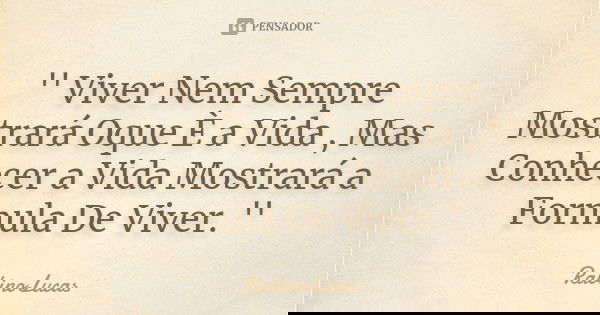 PENSADOR
'' Viver Nem Sempre
Mostrará Oque È a Vida , Mas
Conhecer a Vida Mostrará a
Formula De Viver. ''